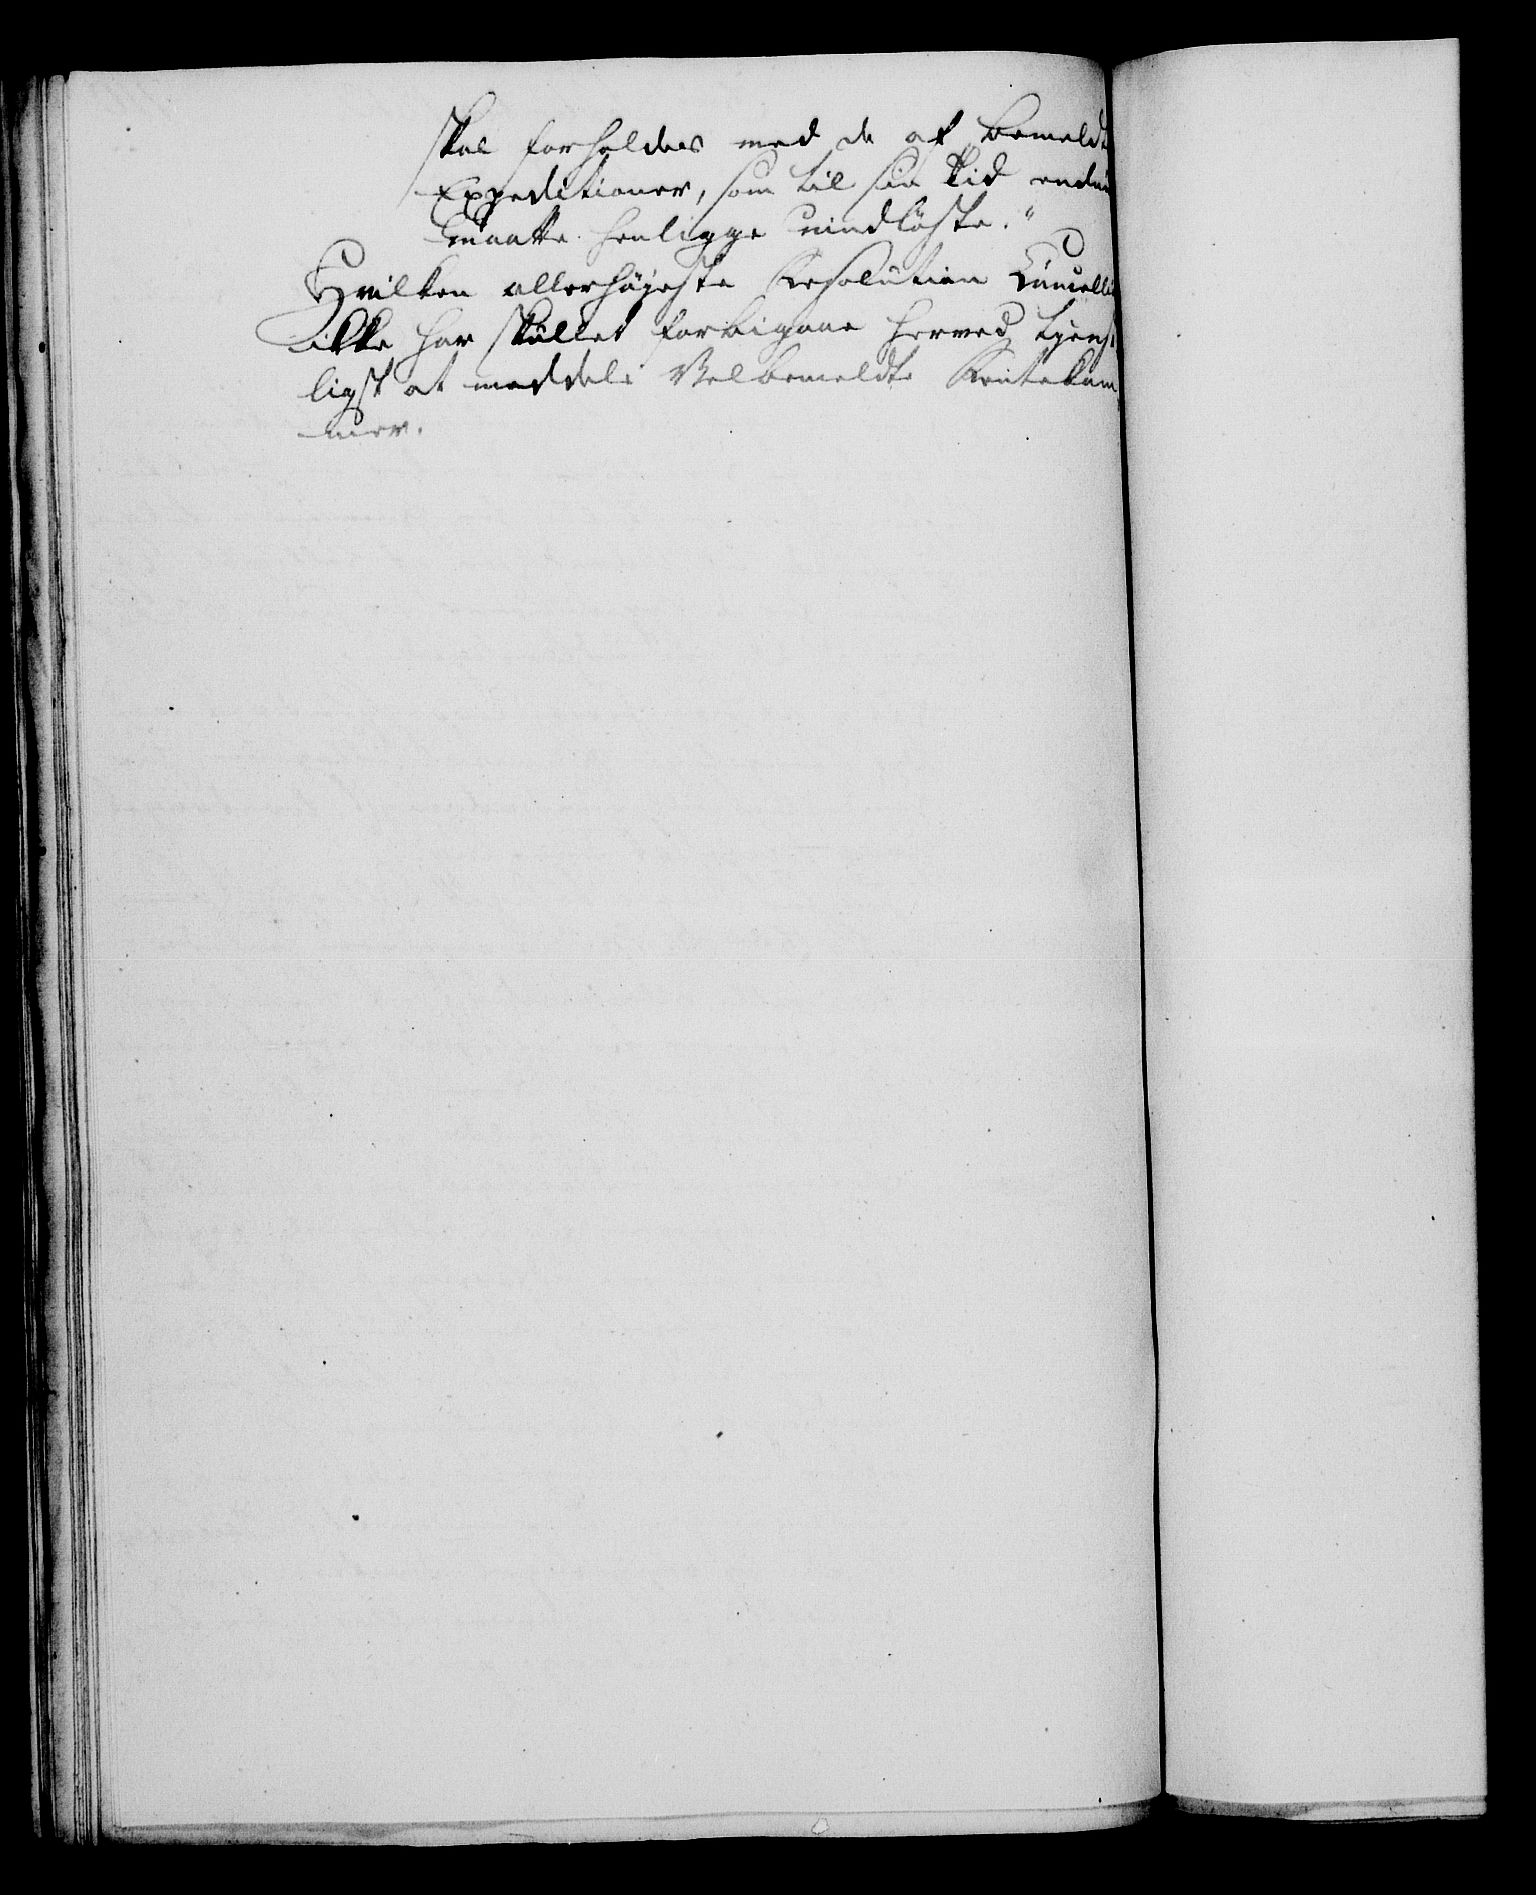 skal forholdes med de af bemeldte
Expeditioner, som til sin Tid endnu
maatte henligge uindløste."
Hvilken allerhøjeste Resolution Cancellie
ikke har skullet forbigaae herved tjenst
ligst at meddele Velbemeldte Rentekam
mer.